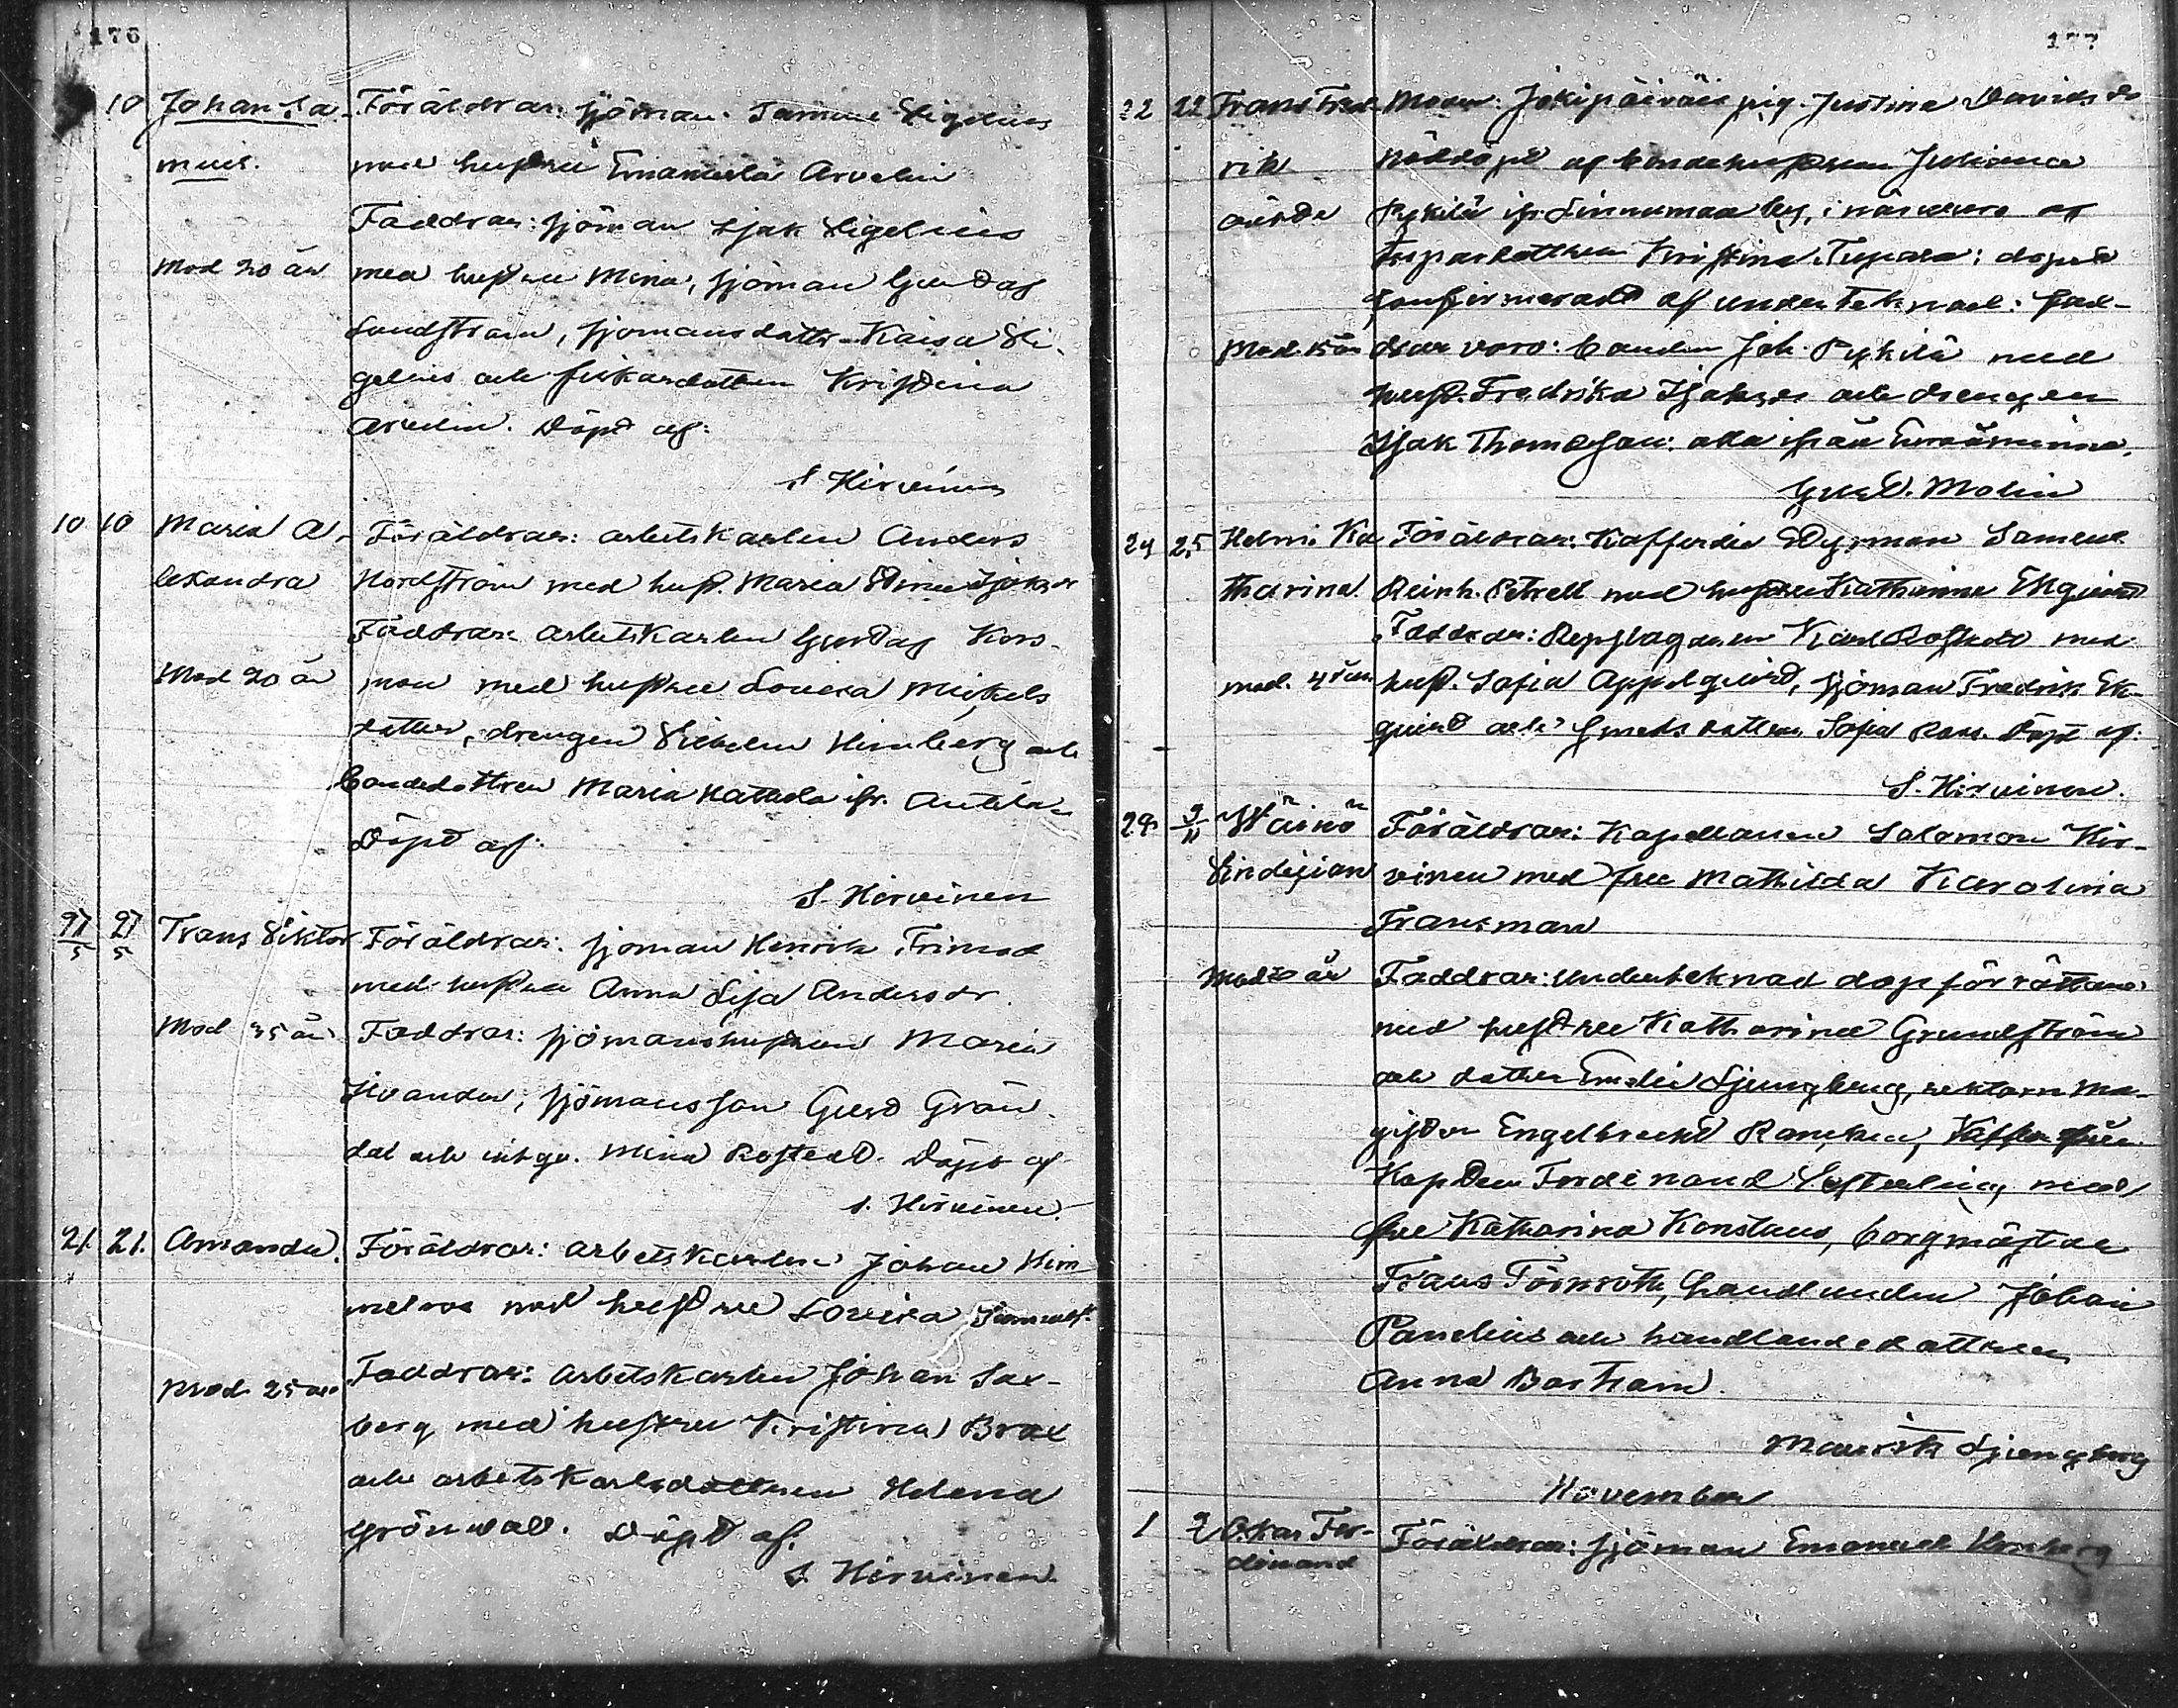 176
10 Johan Sa- Föräldrar: sjöman Samuel Sigelius
muel. med hustru Emanuela Arvelin
Faddrar: sjöman Isak Sigelius
Mod 20 år med hustru Mina, sjöman Gustaf
Sundström, sjömansdottr. Kaisa Si-
gelius och fiskardottren Kristina
Arvelin. Döpt af:
S Hirvinen
10 10 Maria A- Föräldrar: arbetskarlen Anders
lexandra Nordström med hust. Maria Stina Isaksdr
Faddrar: arbetskarlen Gustaf Kors-
Mod 20 år man med hustru Lovisa Mickels
dotter, drengen Vilhelm Himberg och
bondedottren Maria Mattsda ifr. Anttila
Döpt af:
S. Hirvinen
27/5 27/5 Frans Viktor Föräldrar: sjöman Henrik Trimod
med hustru Anna Lisa Andersdr.
Mod 35 år Faddrar: sjömanshustrun Maria
sjömansson Gust Grön-
dal och inhys. Mina Rostedt. Döpt af
S. Hirvinen.
21. 21. Amanda. Föräldrar: arbetskarlen Johan Him
melros med hustru Lovisa
Mod 25 år Faddrar: arbetskarlen Johan Sax-
berg med hustru Kristina Brax
och arbetskarlsdottren Helena
Grönvall. Döpt af.
S. Hirvinen.
177
22 22 Frans Fred- Moder: Jokipäiväis pig. Justina Davidsdr
rik nöddöpt af bondehustrun Juliana
Pykilä ifr. Linnamaa by, i närvaro af
torpardottren Kristina dopet
confirmeradt af undertecknad: fad-
Mod. år drar voro: bonden Joh. Pykilä med
hust. Fredrika Isaksdr och drengen
Isak Thomasson: alla ifrån Euraåminne.
Gust. Molin
24 25 Helmi Ka Föräldrar: Kofferdie Styrman Samuel
tharina Reinh. Petrell med hustru Katharina Ekqvist
Faddrar: Repslagaren Karl Rostedt med
mod. hust. Sofia Appelqvist, sjöman Fredrik Ek-
qvist och smedsdottren Sofia Roos. Döpt af:
S. Hirvinen.
29 9/11 Wäinö Föräldrar: Kapellanen Salomon Hir-
Lindejian vinen med fru Mathilda Karolina
Fransman
Mod år Faddrar: undertecknad dopförrättare
med hustru Katharina Grundström
och dotter Emelie Ljungberg, rektorn Ma-
gister Engelbrekt Rancken,
Kapten Ferdinand med
fru Katharina Konstans, borgmästare
Frans Törnroth, handlanden Johan
Panelius och handlandedottren
Anna Bartram
Maurits Ljungberg
November
1 2 Oskar Fer- Föräldrar: sjöman Emanuel
dinand